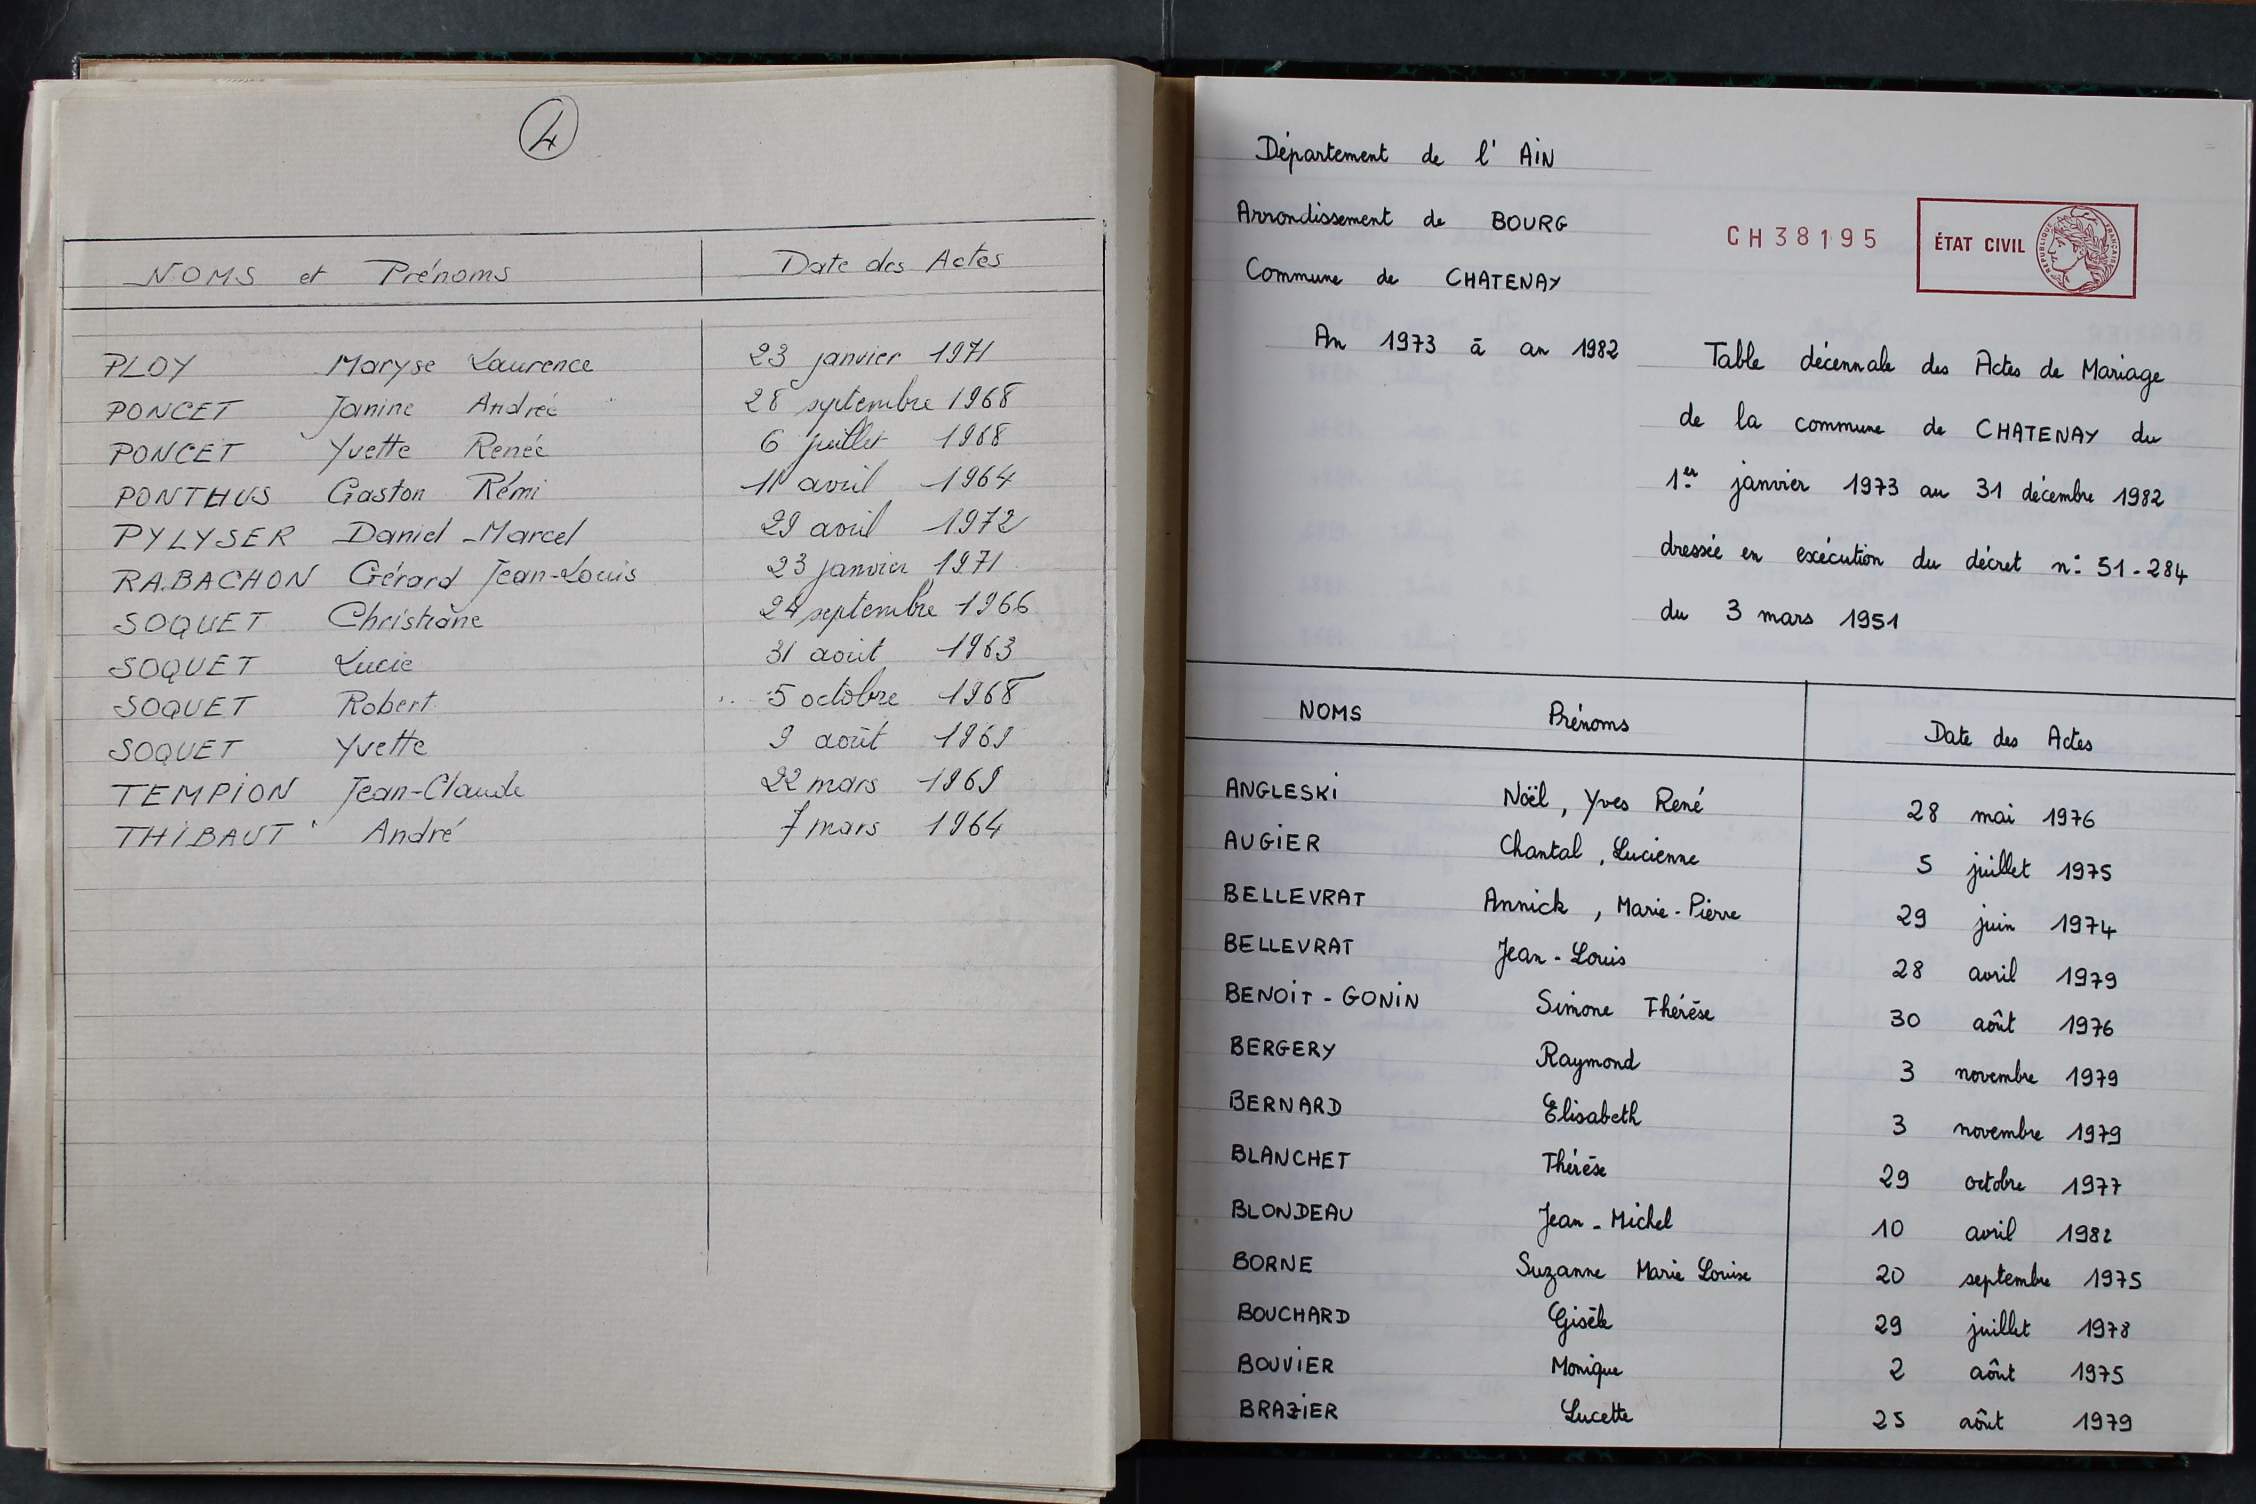 4
NOMS et Prénoms Date des Actes
PLOY Maryse Laurence 23 janvier 1971
PONCET Janine Andrée 28 septembre 1968
PONCET Yvette Renée 6 juillet 1968
PONTHUS Gaston Rémi 11 avril 1964
PYLYSER Daniel Marcel 29 avril 1972
RABACHON Gérard Jean-Louis 23 janvier 1971
SOQUET Christiane 24 septembre 1966
SOQUET Lucie 31 août 1963
SOQUET Robert 5 octobre 1968
SOQUET Yvette 9 août 1969
TEMPION Jean-Claude 22 mars 1969
THIBAUT André 7 mars 1964
Département de l'AIN
Arrondissement de BOURG
CH38195
ÉTAT CIVIL
RÉPUBLIQUE FRANÇAISE
Commune de CHATENAY
An 1973 à an 1982
Table décennale des Actes de Mariage
de la commune de CHATENAY du
1er janvier 1973 au 31 décembre 1982
dressée en exécution du décret n° 51-284
du 3 mars 1951
NOMS Prénoms Date des Actes
ANGLESKI Noël, Yves René 28 mai 1976
AUGIER Chantal, Lucienne 5 juillet 1975
BELLEVRAT Annick, Marie-Pierre 29 juin 1974
BELLEVRAT Jean-Louis 28 avril 1979
BENOIT-GONIN Simone Thérèse 30 août 1976
BERGERY Raymond 3 novembre 1979
BERNARD Elisabeth 3 novembre 1979
BLANCHET Thérèse 29 octobre 1977
BLONDEAU Jean-Michel 10 avril 1982
BORNE Suzanne Marie Louise 20 septembre 1975
BOUCHARD Gisèle 29 juillet 1978
BOUVIER Monique 2 août 1975
BRAZIER Lucette 25 août 1979